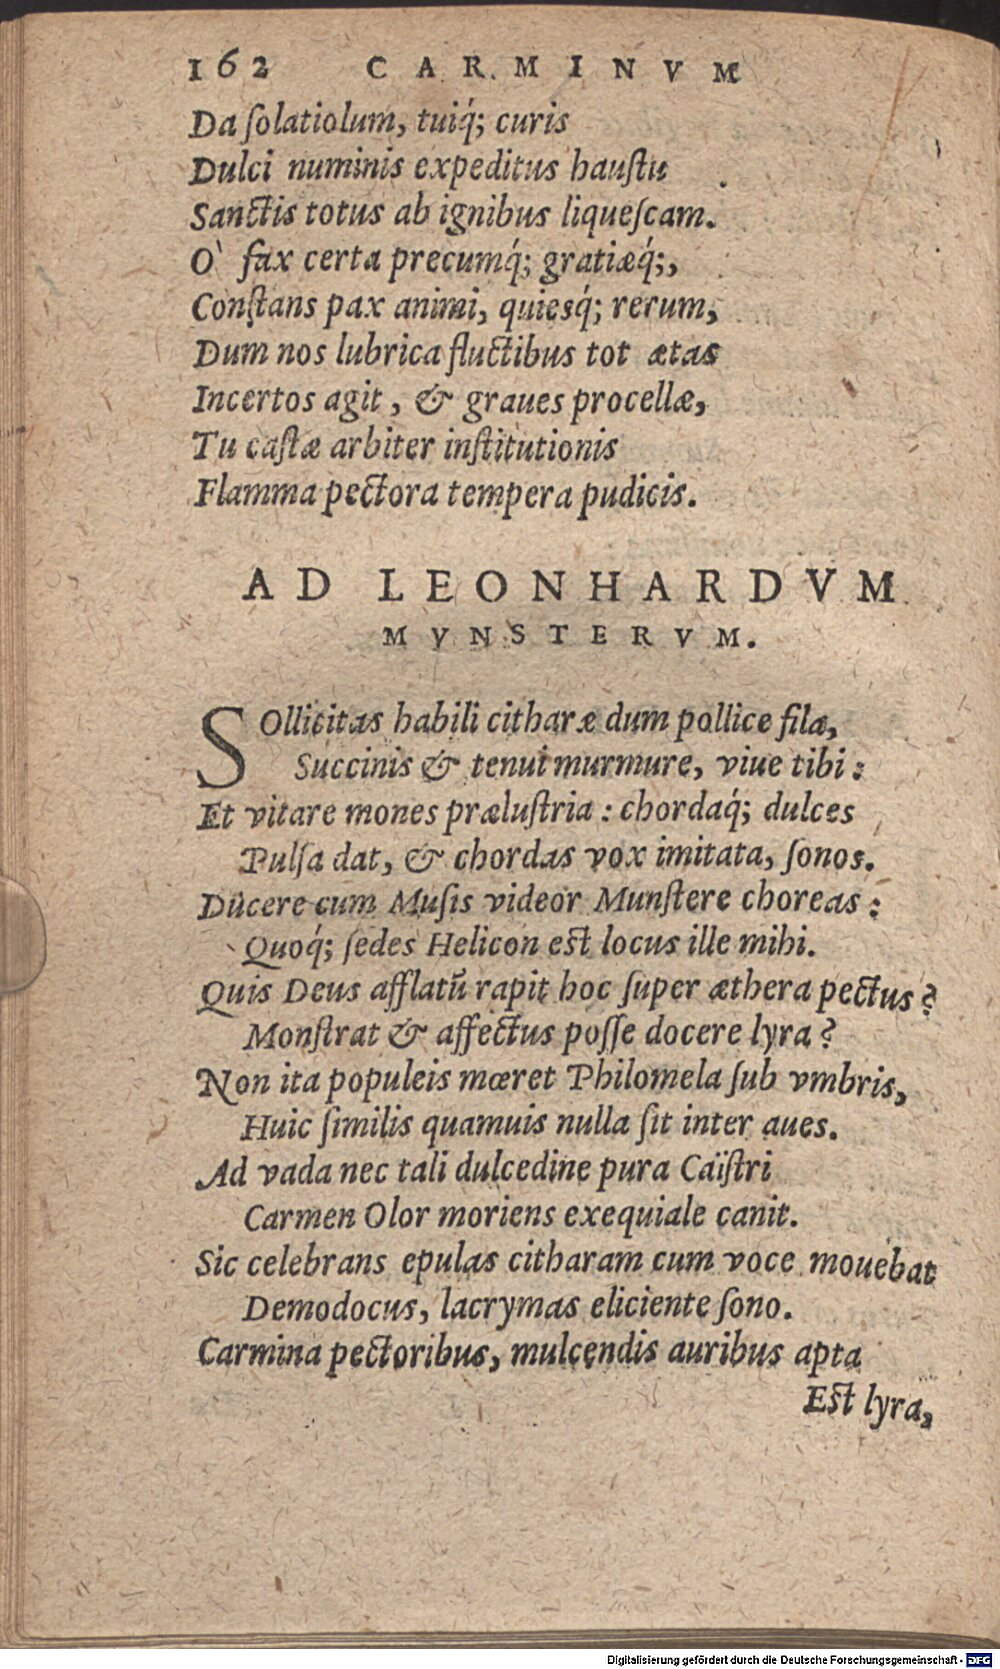 162 CARMINVM
Da ſolatiolum, tuiq́; curis
Dulci numinis expeditus hauſtu
Sanctis totus ab ignibus liqueſcam.
O` fax certa precumq́; gratiæq́;,
Conſtans pax animi, quiesq́; rerum,
Dum nos lubrica fluctibus tot ætas
Incertos agit, & graues procellæ,
Tu caſtæ arbiter inſtitutionis
Flamma pectora tempera pudicis.
AD LEONHARDVM
MVNSTERVM.
SOllicitas habili citharæ dum pollice fila,
Succinis & tenui murmure, viue tibi:
Et vitare mones præluſtria: chordaq́; dulces
Pulſa dat, & chordas vox imitata, ſonos.
Ducere cum Muſis videor Munſtere choreas:
Quoq́; ſedes Helicon eſt locus ille mihi.
Quis Deus afflatũ rapit hoc ſuper æthera pectus?
Monſtrat & affectus poſſe docere lyra?
Non ita populeis mœret Philomela ſub vmbris,
Huic ſimilis quamuis nulla ſit inter aues.
Ad vada nec tali dulcedine pura Caïſtri
Carmen Olor moriens exequiale canit.
Sic celebrans epulas citharam cum voce mouebat
Demodocus, lacrymas eliciente ſono.
Carmina pectoribus, mulcendis auribus apta
Eſt lyra,
Digitalisierung gefördert durch die Deutsche Forschungsgemeinschaft - DFG